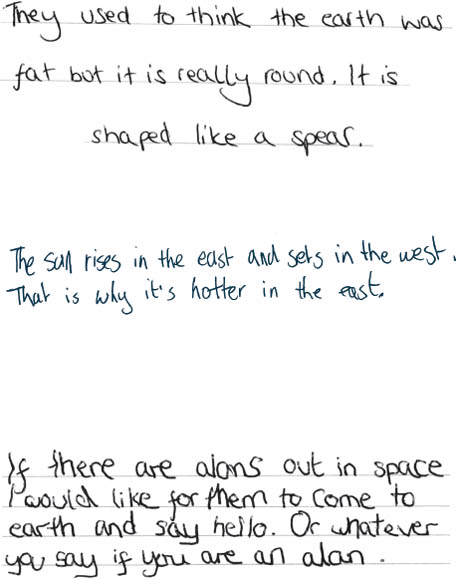 They used to think the earth was
fat but it is really round. It is
shaped like a spear.
The sun rises in the east and sets in the west.
That is why it's hotter in the east.
If there are alans out in space
I would like for them to come to
earth and say hello. Or whatever
you say if you are an alan.